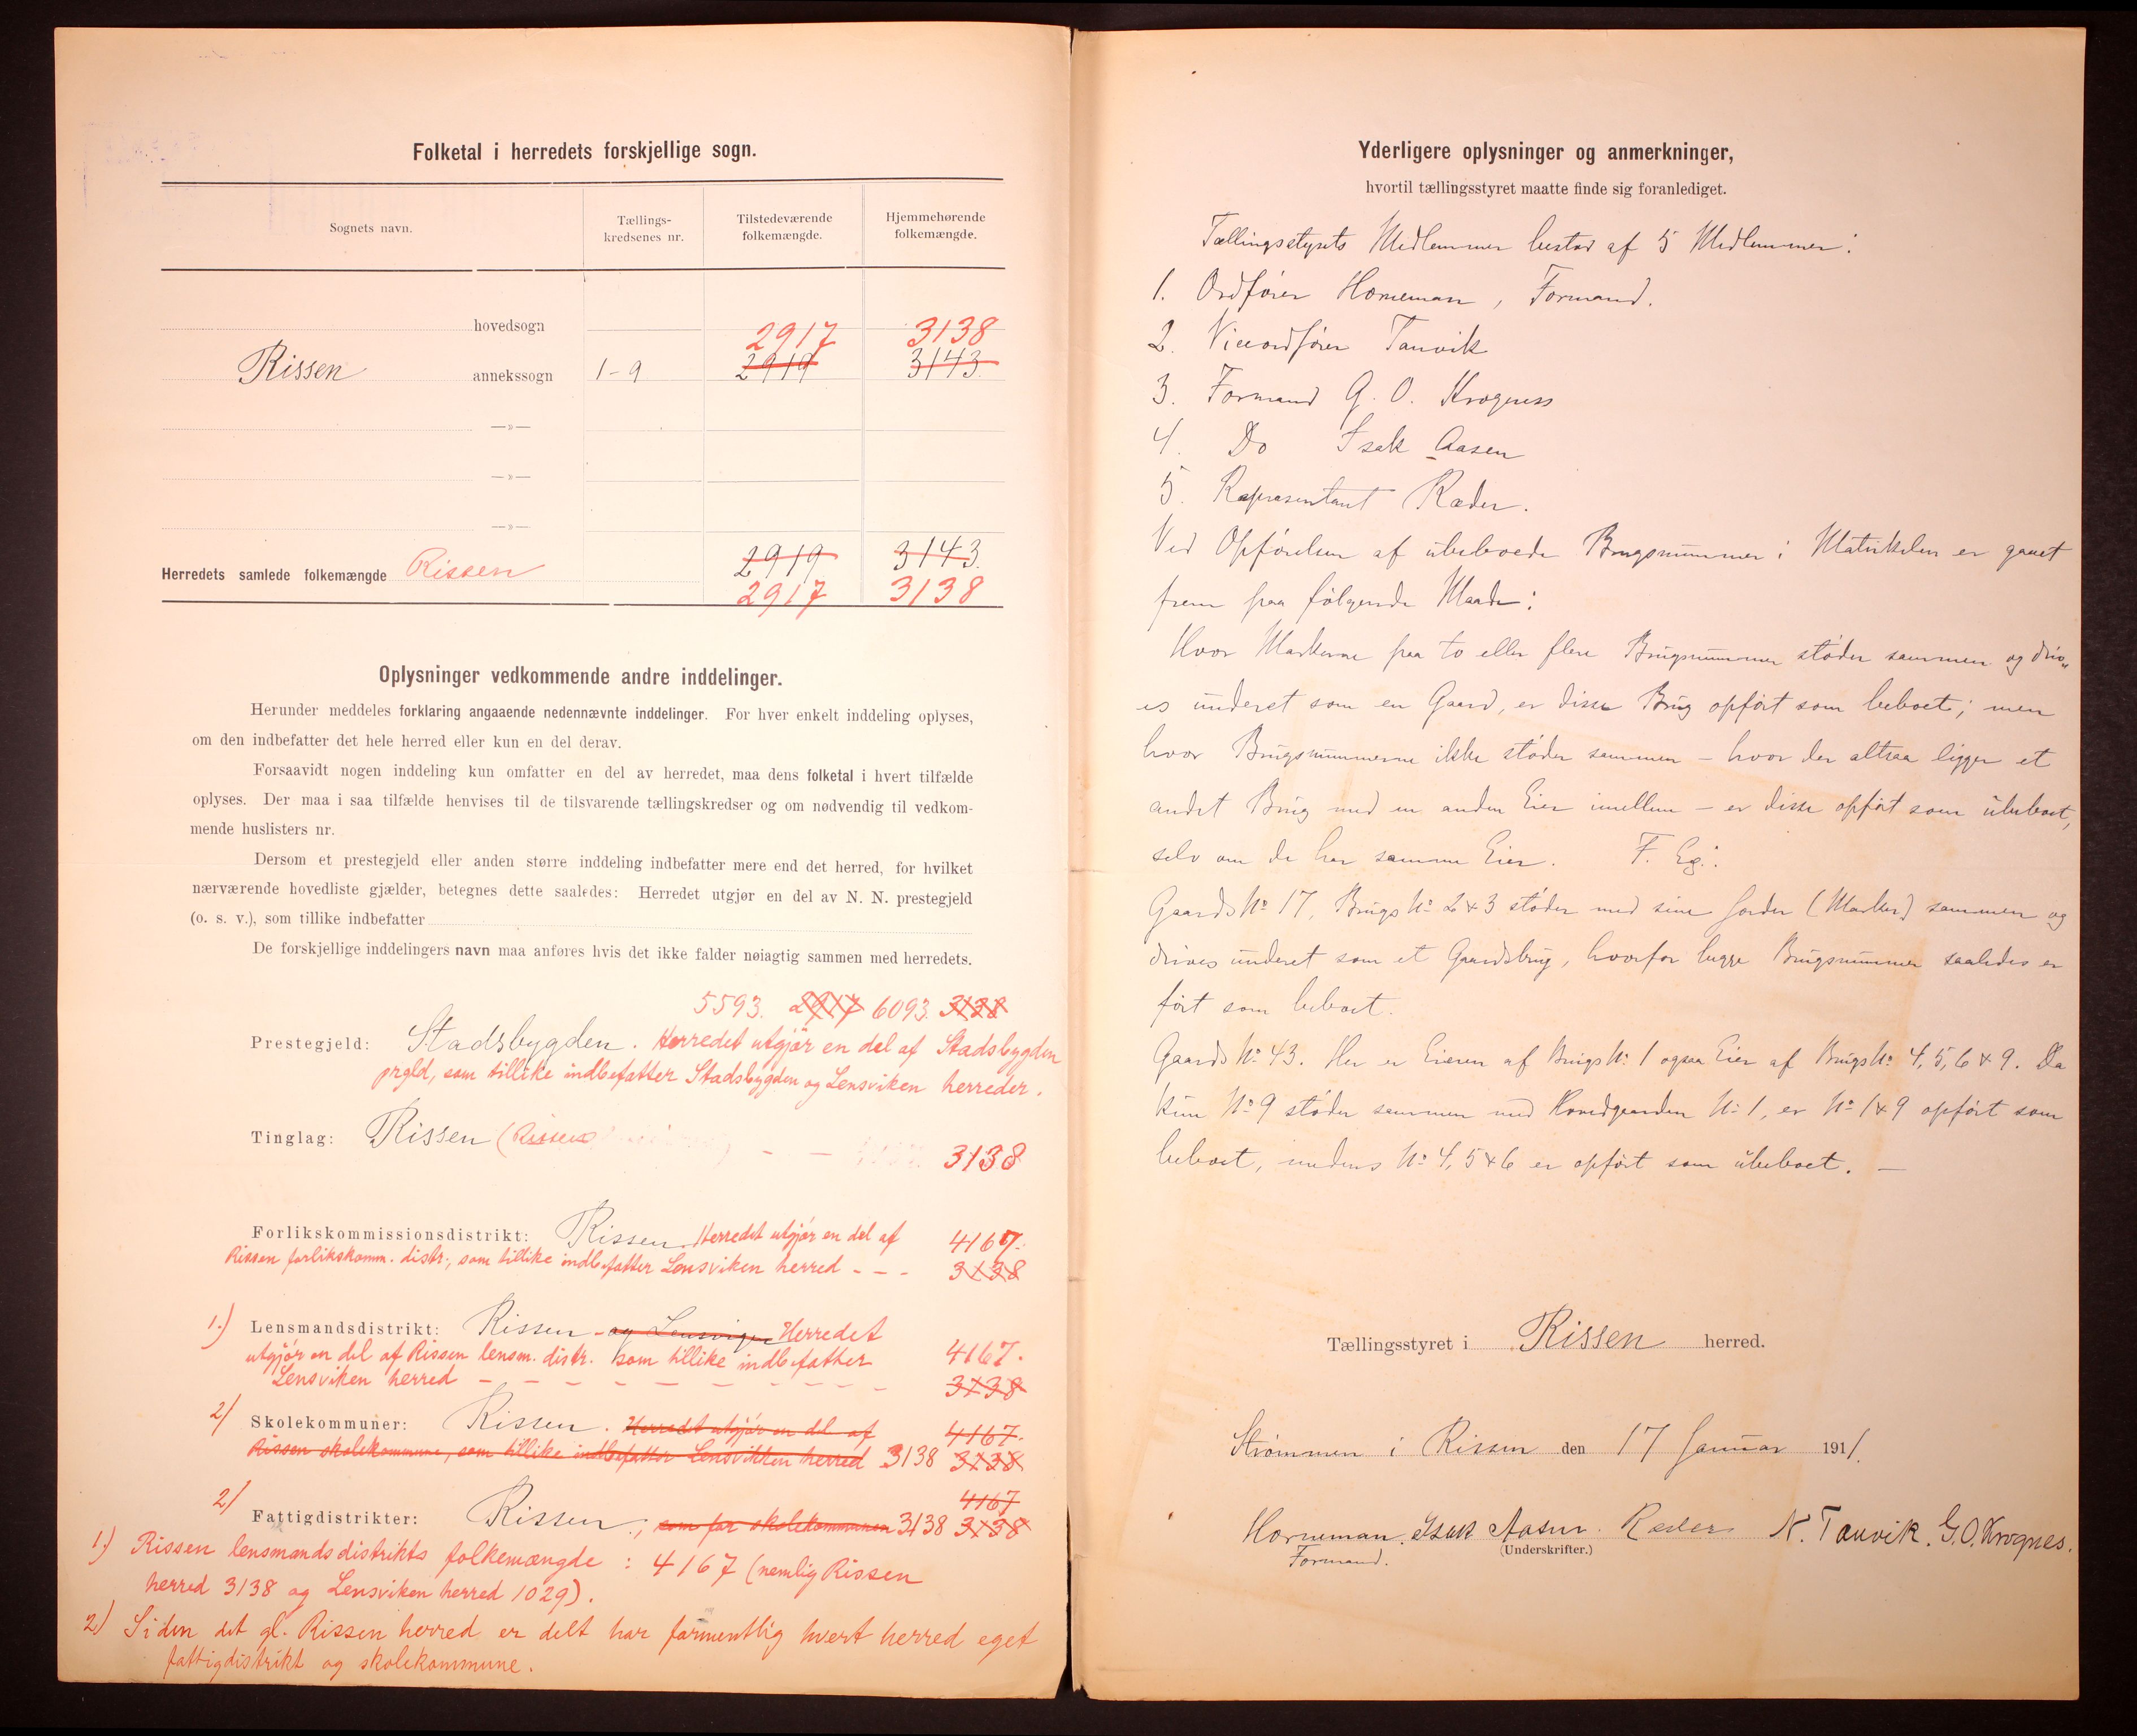 Folketal i herredets forskjellige sogn.
Sognets navn.
Tællings-
kredsenes nr.
Tilstedeværende
folkemængde.
Hjemmehørende
folkemængde.
hovedsogn
2917 3138
Rissen annekssogn 1-9 2919 3143.
—»—
—»—
—»—
2919 3143.
Herredets samlede folkemængde Rissen
2917 3138
Oplysninger vedkommende andre inddelinger.
Herunder meddeles forklaring angaaende nedennævnte inddelinger. For hver enkelt inddeling oplyses,
om den indbefatter det hele herred eller kun en del derav.
Forsaavidt nogen inddeling kun omfatter en del av herredet, maa dens folketal i hvert tilfælde
oplyses. Der maa i saa tilfælde henvises til de tilsvarende tællingskredser og om nødvendig til vedkom-
mende huslisters nr.
Dersom et prestegjeld eller anden større inddeling indbefatter mere end det herred, for hvilket
nærværende hovedliste gjælder, betegnes dette saaledes: Herredet utgjør en del av N. N. prestegjeld
(o. s. v.), som tillike indbefatter
De forskjellige inddelingers navn maa anføres hvis det ikke falder nøiagtig sammen med herredets.
5593. 2917 6093. 3138
Prestegjeld: Stadsbygden. Herredet utgjør en del af Stadsbygden
prgld, som tillike indbefatter Stadsbygden og Lensviken herreder.
Tinglag: Rissen (Rissen
3138
Forlikskommissionsdistrikt: Rissen. Herredet utgjør en del af 4167.
Rissen forlikskomm. distr., som tillike indbefatter Lensviken herred - - - 3138
1.) Lensmandsdistrikt: Rissen og Lensvigen Herredet
utgjør en del af Rissen lensm. distr. som tillike indbefatter 4167.
Lensviken herred - - - - - - - - - - 3138
2) Skolekommuner: Rissen. Herredet utgjør en del af 4167.
Rissen skolekommune, som tillike indbefatter Lensviken herred 3138 3138
4167
2) Fattigdistrikter: Rissen., som for skolekommunen 3138 3138
1.) Rissen lensmandsdistrikts folkemængde : 4167 (nemlig Rissen
herred 3138 og Lensviken herred 1029).
2) Siden det gl. Rissen herred er delt har formentlig hvert herred eget
fattigdistrikt og skolekommune.
Yderligere oplysninger og anmerkninger,
hvortil tællingsstyret maatte finde sig foranlediget.
Tællingsstyrets Medlemmer bestod af 5 Medlemmer:
1. Ordfører Horneman, Formand.
2. Viceordfører Tanvik
3. Formand G. O. Krognes
4. Do Isak Aasen
5. Repræsentant Ræder.
Ved Opførelsen af ubeboede Brugsnummer i Matrikelen er gaaet
frem paa følgende Maade:
Hvor Markerne paa to eller flere Brugsnummer støder sammen og driv-
es underet som en Gaard, er disse Brug opført som beboet; men
hvor Brugsnummerne ikke støder sammen – hvor der altsaa ligger et
andet Brug med en anden Eier imellem – er disse opført som ubeboet,
selv om de har samme Eier. F. Eg.:
Gaards No 17, Brugs No 2 & 3 støder med sine Jorder (Marker) sammen og
drives underet som et Gaardsbrug, hvorfor begge Brugsnummer saaledes er
ført som beboet.
Gaards No 43. Her er Eieren af Brugs No 1 ogsaa Eier af Brugs No 4, 5, 6 & 9. Da
kun No 9 støder sammen med Hovedgaarden No 1, er No 1 & 9 opført som
beboet, medens No 4, 5 & 6 er opført som ubeboet. —
Tællingsstyret i Rissen herred.
Strømmen i Rissen den 17 Januar 1911.
Horneman. Isak Aasen. Ræder N. Tanvik. G. O. Krognes.
Formand.
(Underskrifter.)